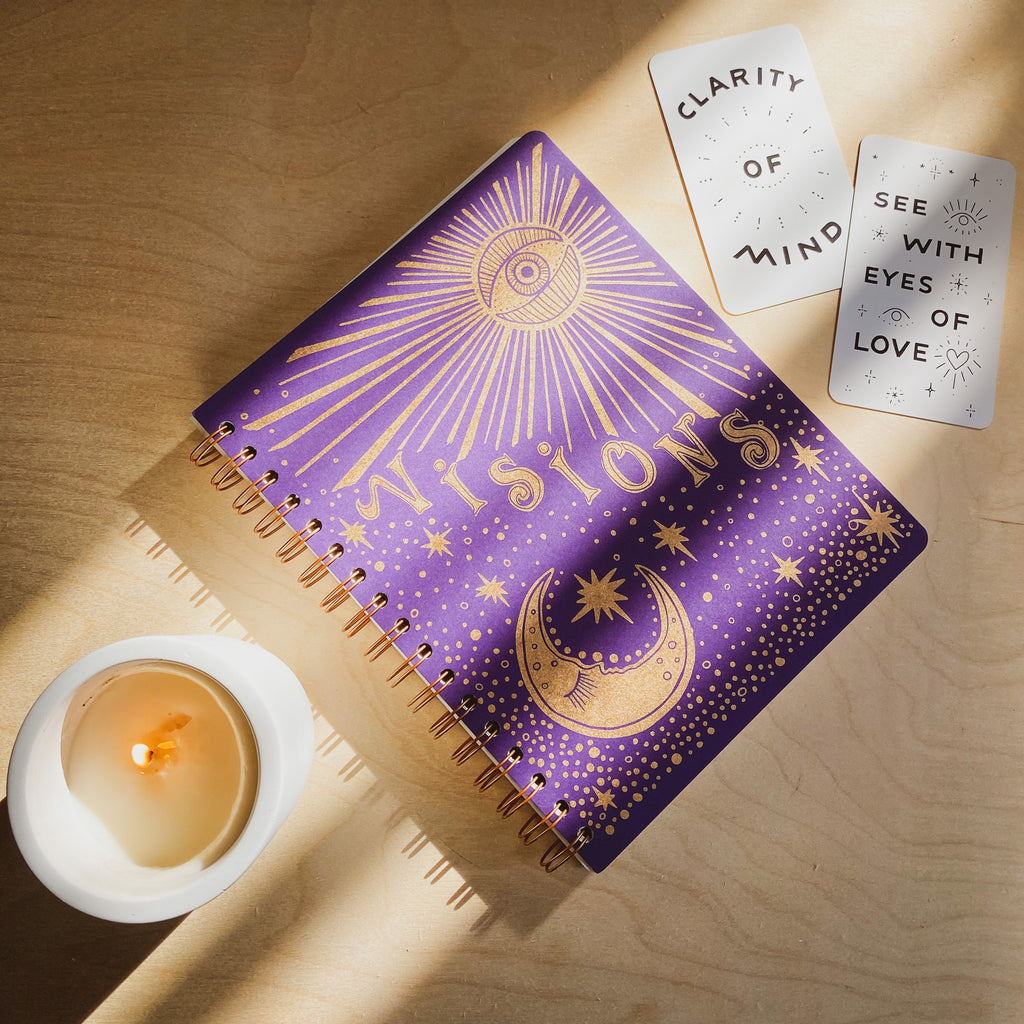 VISIONS
CLARITY
OF
MIND
SEE
WITH
EYES
OF
LOVE